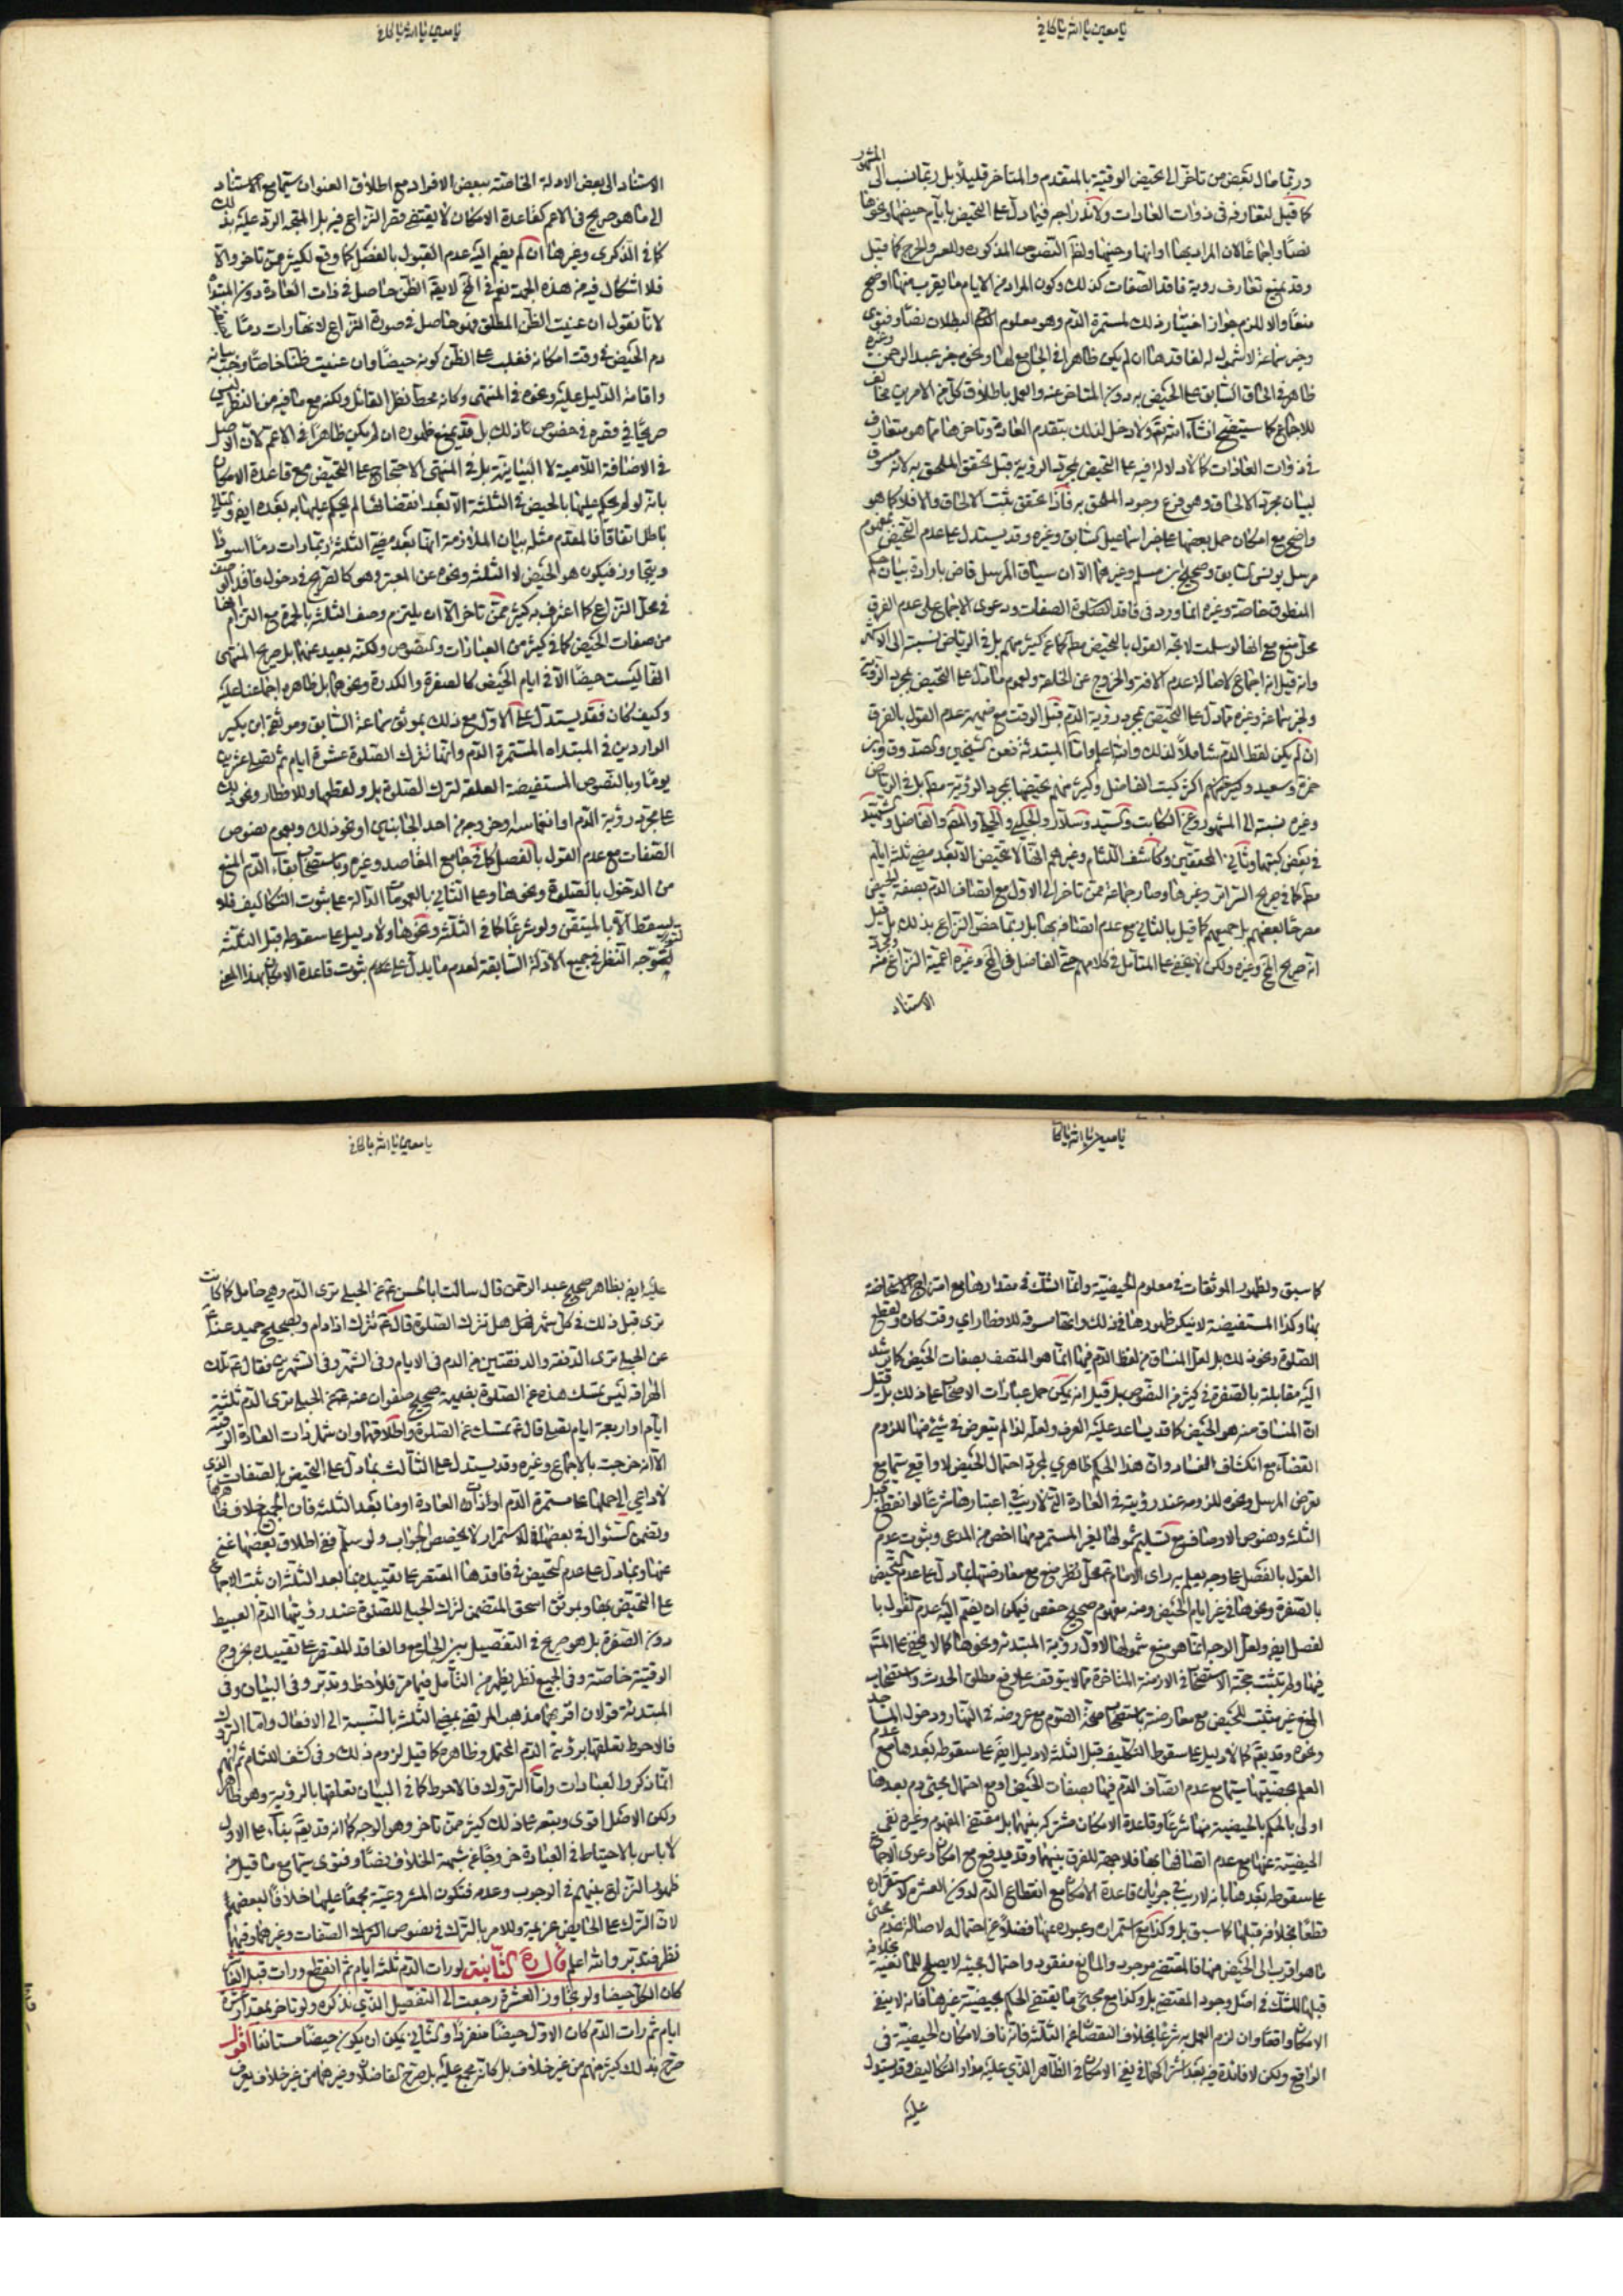 يا معين يا الله يا كافي
وربما مال بعض من تاخر الى تحيض الوقتية بالمتقدم والمتاخر قليلا بل ربما نسب الى المشهور
كما قيل لتعارفه في ذوات العادات ولاندراجه فيما دل على التحيض بايام حيضها ونحوها
نصا واجماعا لان المراد بها اوانها وحينها ولظ النصوص المذكورة وللعسر والحرج كما قيل
وقد يمنع تعارف روية فاقد الصفات كذلك وكون المراد من الايام ما يقرب منها اوضح
منعا والا للزم جواز اختيار ذلك لمستمرة الدم وهو معلوم البطلان نصا وفتوى
وخبر سماعة لا شمول له لفاقدها ان لم يكن ظاهرا في الجامع لها ونحوه خبر عبد الرحمن وغيره
ظاهر في الحاق السابق على الحيض به دون المتاخر عنه والعمل باطلاق كل من الامرين مخالف
للاجماع كما سيتضح انشاء الله تعالى ولا دخل لذلك بتقدم العادة وتاخرها مما هو متعارف
في ذوات العادات كما لا دلالة فيه على التحيض بمجرد الروية قبل تحقق الملحق به لانه مسوق
لبيان مجرد الالحاق وهي فرع وجود الملحق به فاذا تحقق ثبت الالحاق والا فلا كما هو
واضح مع امكان حمل بعضها على خبر اسماعيل كسابق وغيره وقد يستدل على عدم التحيض بمفهوم
مرسل يونس كسابق وصحيح ابن مسلم وغيرهما الا ان سياق المرسل قاض بارادة بيان حكم
المنطوق خاصة وغيره انما ورد في فاقد الصفات ودعوى الاجماع على عدم الفرق
محل منع مع انها لو سلمت لاتجه القول بالتحيض مط كما عن كثير منهم بل في الرياض نسبته الى الاكثر
وانه قيل انه اجماع لاصالة عدم الافة والخروج عن الخلقة ولعموم ما دل على التحيض بمجرد الروية
ولخبر سماعة وغيره مما دل على التحيض بمجرد روية الدم قبل الوقت مع ضميمة عدم القول بالفرق
ان لم يكن لفظ الدم شاملا لذلك والله اعلم واما المبتدئة فعن الشيخين والصدوق وابن
حمزة وسعيد وكثير منهم اكثر كتب الفاضل وكثير منهم تحيضها بمجرد الروية مط بل في الرياض
وغيره نسبته الى المشهور وعن الكاتب والسيد وسلار والحلبي والحلي والمص والفاضل والشهيد
في بعض كتبهما وثاني المحققين وكاشف اللثام وغيرهم انها لا تتحيض الا بعد مضي ثلثة ايام
مط كما في صريح السرائر وغيرها وصار جماعة ممن تاخر الى الاول مع اتصاف الدم بصفة الحيض
مصرحا بعضهم بل جميعهم كما قيل بالثاني مع عدم اتصافه بها بل ربما خص النزاع بذلك بل قيل
انه صريح المخ وغيره ولكن لا يخفى على المتامل في كلامهم حتى الفاضل في المخ وغيره اعمية النزاع منه ومجرد
الاستناد
يا معين يا الله يا كافي
الاستناد الى بعض الادلة الخاصة ببعض الافراد مع اطلاق العنوان سيما مع الاستناد
الى ما هو صريح في الاعم كقاعدة الامكان لا يقتضي قصر النزاع فيه بل المتجه الرد عليه بذلك
كما في الذكرى وغيرها ان لم يقم اليه عدم القبول بالفصل كما وقع لكثير ممن تاخر والا
فلا اشكال فيه من هذه الجهة نعم في المخ لا يقال الظن حاصل في ذات العادة دون المبتداة
لانا نقول ان عنيت الظن المطلق فهو حاصل في صورة النزاع لانها رات دما
دم الحيض في وقت امكانه فغلب على الظن كونه حيضا وان عنيت ظنا خاصا وجب بيانه
واقامة الدليل عليه ونحوه في المنتهى وكانه محط نظر القائل ولكنه مع ما فيه من النظر ليس
صريحا في فقره في خصوص ذلك بل قد يمنع ظهوره ان لم يكن ظاهرا في الاعم لان الاصل
في الاضافة اللامية لا البيانية بل في المنتهى الاحتجاج على التحيض مع قاعدة الامكان
بانه لو لم يحكم عليها بالحيض في الثلثة الا بعد انقضائها لم يحكم عليها به بعده ايض والتالي
باطل اتفاقا فالمقدم مثله بيان الملازمة انها بعد مضي الثلثة ربما رات دما اسود
ويتجاوز فيكون هو الحيض لا الثلثة ونحوه عن المعتبر وهو كالصريح في دخول فاقد الوصف
في محل النزاع كما اعترف به كثير ممن تاخر الا ان يلتزم وصف الثلثة بالحمرة مع التزام انها
من صفات الحيض كما في كثير من العبارات والنصوص ولكنه بعيد عنها بل صريح المنتهى
انها ليست حيضا الا في ايام الحيض كالصفرة والكدرة ونحوهما بل ظاهره اجماعنا عليه
وكيف كان فقد يستدل على الاول مع ذلك بموثق سماعة السابق وموثقي ابن بكير
الواردين في المبتداة المستمرة الدم وانها تترك الصلوة عشرة ايام ثم تصلي عشرين
يوما وبالنصوص المستفيضة المعلقة لترك الصلوة بل ولقطعها وللافطار ونحو ذلك
على مجرد رؤية الدم او انغماسه وخروجه من احد الجانبين او نحو ذلك وبعموم نصوص
الصفات مع عدم القول بالفصل كما في جامع المقاصد وغيره وباستصحاب بقاء الدم المنع
من الدخول بالصلوة ونحوها وعلى الثاني بالعمومات الدالة على ثبوت التكاليف فلا
يسقط الا بالمتيقن ولو شرعا كما في الثلثة ونحوها ولا دليل على سقوطه قبل الثلثة
لتوجه النظر في جميع الادلة السابقة لعدم ما يدل على عموم ثبوت قاعدة الامكان بهذا المعنى
يا معين يا الله يا كا
كما سبق ولظهور الموثقات في معلوم الحيضية وانما الشك في مقدارها مع امتزاج الاستحاضة
بها وكذا المستفيضة لا ينكر ظهورها في ذلك وانها مسوقة للافطار اي وقت كان ولقطع
الصلوة ونحو ذلك بل لعل المنساق من لفظ الدم فيها انما هو المتصف بصفات الحيض كما يرشد
اليه مقابلته بالصفرة في كثير من النصوص بل قيل انه يمكن حمل عبارات الاصحاب على ذلك بل قيل
ان المنساق منه هو الحيض كما قد يساعد عليه العرف ولعله لذا لم يتعرض في شئ منها للزوم
القضاء مع انكشاف الفساد وان هذا الحكم ظاهري لمجرد احتمال الحيض لا واقعي سيما مع
تعرض المرسل ونحوه للزومه عند رؤيته في العادة التي لا ريب في اعتبارها شرعا لو انقطع قبل
الثلثة ونصوص الاوصاف مع تسليم شمولها لغير المستمر بها اخص من المدعى وبثبوت عدم
القول بالفصل على وجه يعلم به راى الامام ع محل نظر بل منع مع معارضتها بما دل على عدم التحيض
بالصفرة ونحوها في غير ايام الحيض ومنه مفهوم صحيح حفص فيمكن ان يضم اليه عدم القول با
لفصل ايض ولعل الوجه انما هو منع شمولها لاول رؤية المبتدئة ونحوها كما لا يخفى على المتامل
فيها ولم يثبت حجية الاستصحاب في الازمنة المتاخرة مما لا يتوقف على رفع مطلق الحدث واستصحاب
المنع غير مثبت للحيض مع معارضته باستصحاب صحة الصوم مع عروضه في النهار ودخول المساجد
ونحوه وقد يقال كما لا دليل على سقوط التكليف قبل الثلثة لا دليل ايض على سقوطه بعدها مع عدم
العلم بحيضيتها سيما مع عدم اتصاف الدم فيها بصفات الحيض او مع احتمال مجيئ دم بعدها
اولى بالحكم بالحيضية منها شرعا وقاعدة الامكان مشتركة بينهما بل مقتضى المفهوم وغيره نفي
الحيضية عنها مع عدم اتصافها بها فلا جهة للفرق بينهما وقد يدفع مع امكان دعوى الاجماع
على سقوطه بعدها بانه لا ريب في جريان قاعدة الامكان مع انقطاع الدم لدون العشرة لاستقراره
قطعا بخلافه قبلها كما سبق بل وكذا مع استمراره وعبوره عنها فضلا عن احتماله لاصالة عدم مجيئ
ما هو اقرب الى الحيض منها فالمقتضي موجود والمانع مفقود واحتمال مجيئه لا يصلح للمانعية بخلافه
قبلها للشك في اصل وجود المقتضي بل وكذا مع مجيئ ما يقتضي الحكم بحيضية غيرها فانه لا ينفي
الامكان واقعا وان لزم العمل به شرعا بخلاف النقصان عن الثلثة فانه ناف لامكان الحيضية في
الواقع ولكن لا فائدة فيه بعد اشتراكهما في نفي الامكان في الظاهر الذي عليه مدار التكاليف وقد يستدل
عليه
يا معين يا الله يا كافي
عليه ايض بظاهر صحيح عبد الرحمن قال سالت ابا الحسن ع عن الحبلى ترى الدم وهي حامل كما كانت
ترى قبل ذلك في كل شهر هل تترك الصلوة قال ع تترك اذا دام وبصحيح حميد عنه ع
عن الحبلى ترى الدفقة والدفقتين من الدم في الايام وفي الشهر وفي الشهرين فقال ع تلك
الهراقة ليس تمسك هذه عن الصلوة بضميمة صحيح صفوان عنه ع عن الحبلى ترى الدم ثلثة
ايام او اربعة ايام تصلي قال ع تمسك عن الصلوة واطلاقها وان شمل ذات العادة الوقتية
الا انه خرجت بالاجماع وغيره وقد يستدل على الثالث بما دل على التحيض بالصفات الذي
لا داعي الى حملها على مستمرة الدم او ذات العادة او ما بعد الثلثة فان الجميع خلاف ظاهرها
وتضمن السئوال في بعضها الاستمرار لا يخصص الجواب ولو سلم ففي اطلاق بعضها غنى
عنها وبما دل على عدم التحيض في فاقدها المقتصر على تقييده بما بعد الثلثة ان ثبت الاجماع
على التحيض بها وبموثق اسحق المتضمن لترك الحبلى للصلوة عند رؤيتها الدم العبيط
دون الصفرة بل هو صريح في التفصيل بين الجامع والفاقد المقتصر على تقييده بخروج
الوقتية خاصة وفي الجميع نظر يظهر من التامل فيما مر فلاحظ وتدبر وفي البيان وفي
المبتدئة قولان اقربهما مذهب المرتضى بمضي الثلثة بالنسبة الى الافعال واما التروك
فالاحوط تعلقها برؤية الدم المحتمل وظاهره كما قيل لزوم ذلك وفي كشف اللثام ثم انهم
انما ذكروا العبادات واما التروك فالاحوط كما في البيان تعلقها بالرؤية وهو ظاهر
ولكن الاصل اقوى وتبعه على ذلك كثير ممن تاخر وهو الوجه كما انه قد يقال بناء على الاول
لا باس بالاحتياط في العبادة خروجا عن شبهة الخلاف نصا وفتوى سيما مع ما قيل من
ظهور النزاع بينهم في الوجوب وعدمه فتكون المشروعية مجمعا عليها خلافا لبعضهم
لان الترك على الحائض عزيمة وللامر بالترك في نصوص الترك الصفات وغيرهما وفيهما
نظر فتدبر والله اعلم قال ره الثانية لو رات الدم ثلثة ايام ثم انقطع ورات قبل العاشر
كان الكل حيضا ولو تجاوز العشرة رجعت الى التفصيل الذي نذكره ولو تاخر بمقدار عشرة
ايام ثم رات الدم كان الاول حيضا منفردا والثاني يمكن ان يكون حيضا مستانفا اقول
صرح بذلك كثير منهم من غير خلاف بل كانه مجمع عليه بل صرح الفاضلان وغيرهما من غير خلاف يعرف